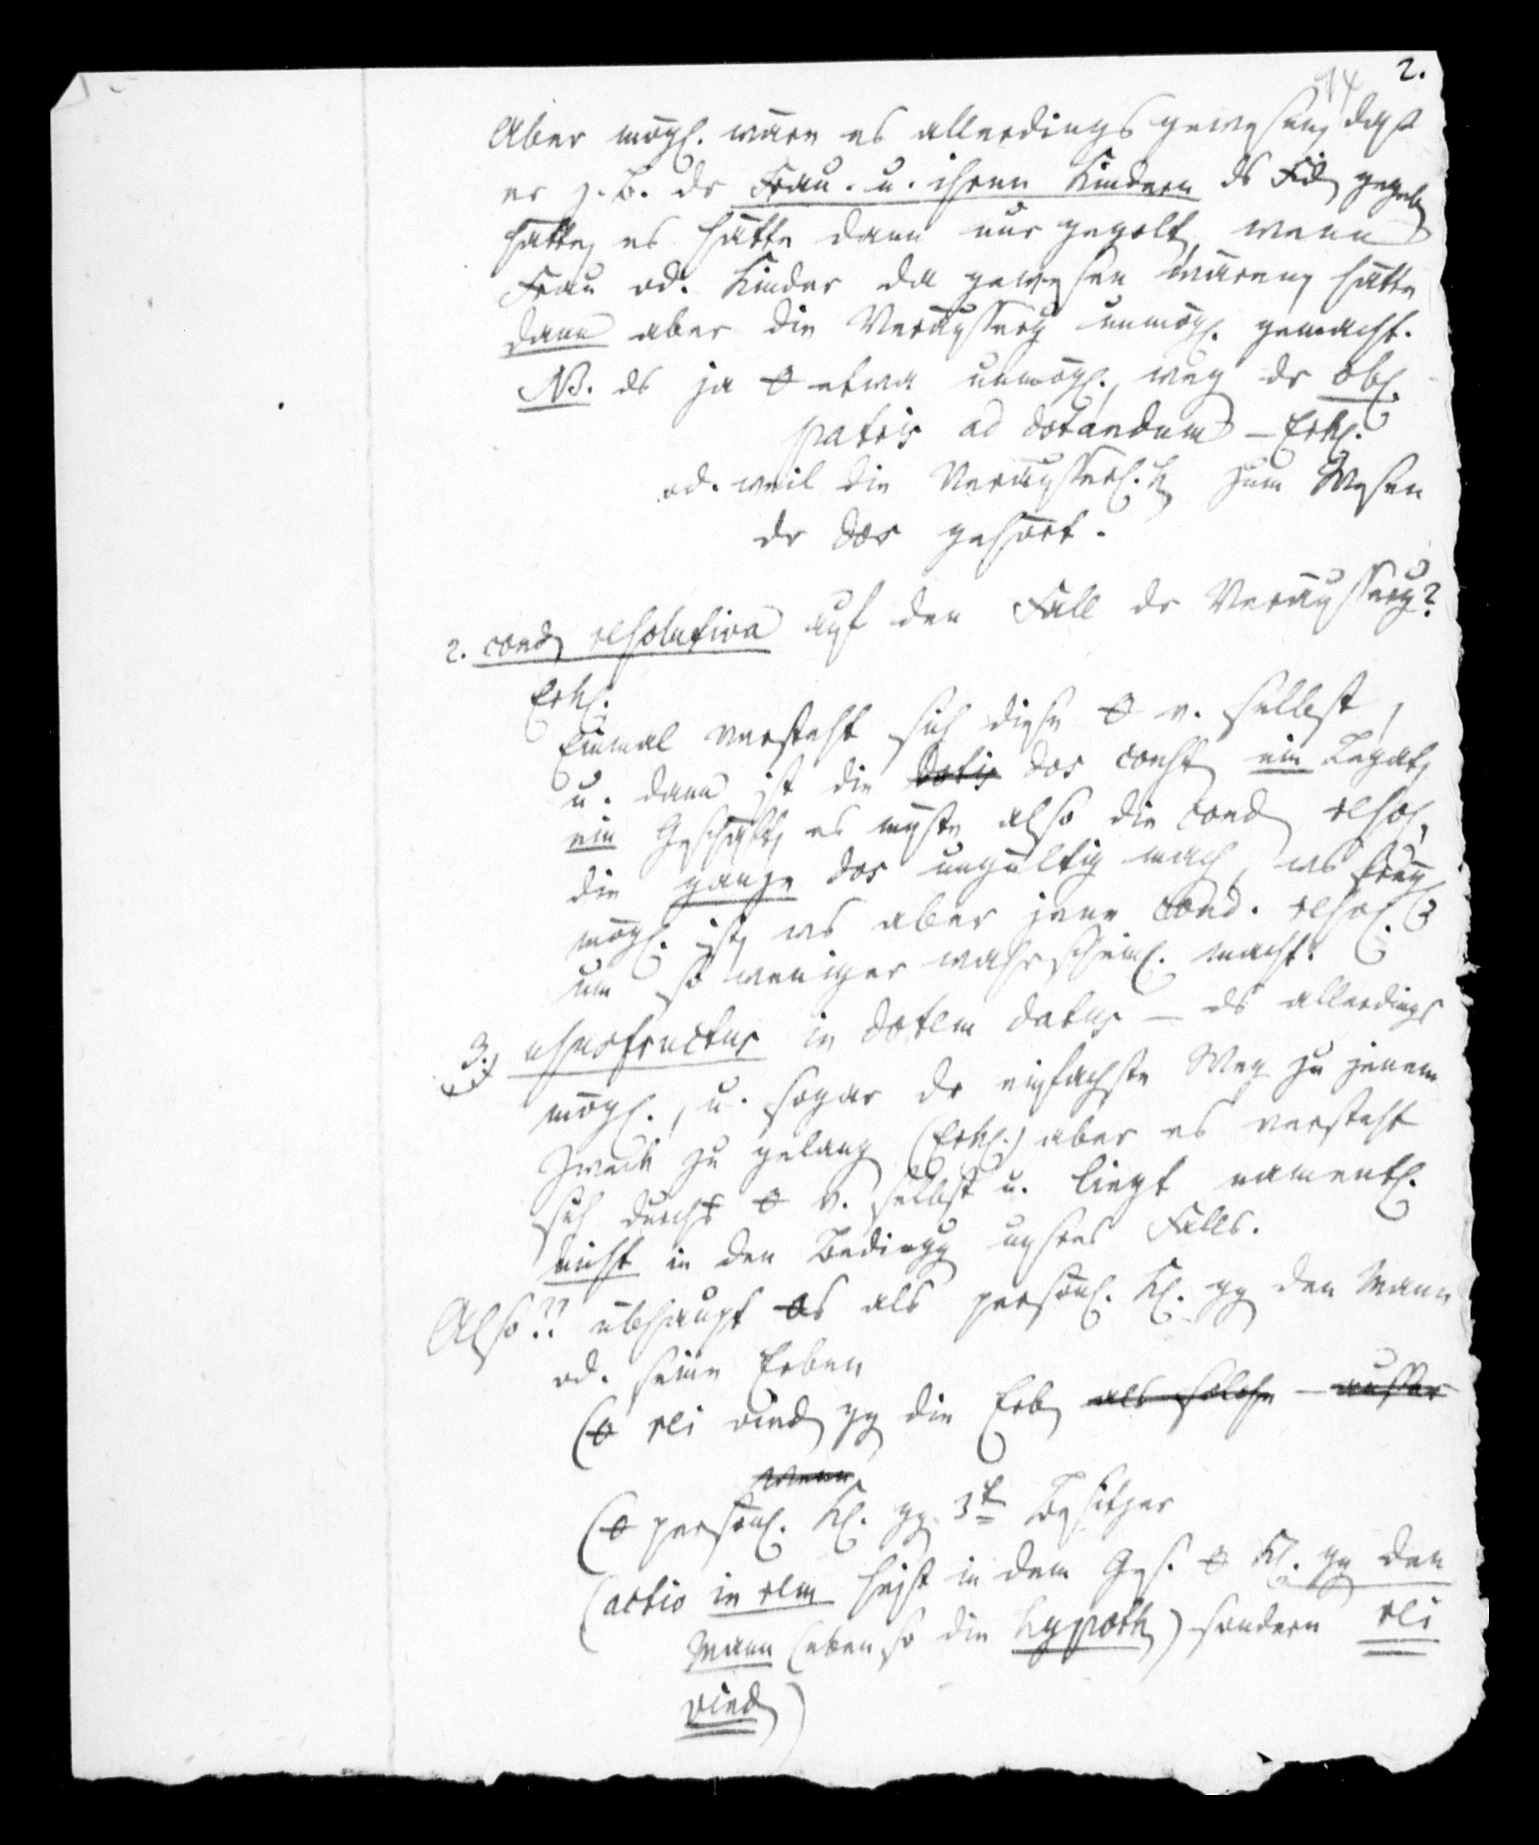 2.
14
Aber mögl. wäre es allerdings gewesen, daß
er z. B. dr Frau. u. ihren Kindern ds Fid. gegeb.
hätte, es hätte dann nur gegolt, wenn
Frau od. Kinder da gewesen wären, hätte
dann aber die Veräusserg unmögl. gemacht.
NB. ds ja 0 etwa unmögl., weg dr obl.
patris ad dotandum – Erkl.
od. weil die Veräusserl.k. zum Wesen
dr dos gehört.
2. cond. resolutiva auf den Fall dr Veräusserg?
Erkl.
Einmal versteht sich diese 0 v. selbst,
u. dann ist die dotis dos const. ein Legat,
ein Geschäft, es müste also die cond. resol.
die ganze dos ungültig mach,
mögl. ist, was aber jene cond. resol.
um so weniger wahrscheinl. macht.
3., ususfructus in dotem datus – ds allerdings
mögl., u. sogar dr einfachste Weg zu jenem
Zweck zu gelang (Erkl.) aber es versteht
sich durchs 0 v. selbst u. liegt namentl.
nicht in den Bedingg unsres Falls.
Also?? übhaupt 0s als persönl. Kl. gg den Mann
od. seine Erben
(0 rei vind. gg die Erb. als solche – ausser
wenn
(0 persönl. Kl. gg. 3t Besitzer
(actio in rem heist in dem Ges. 0 Kl. gg den
Mann (eben so die Hypoth.) sondern rei
vind.)